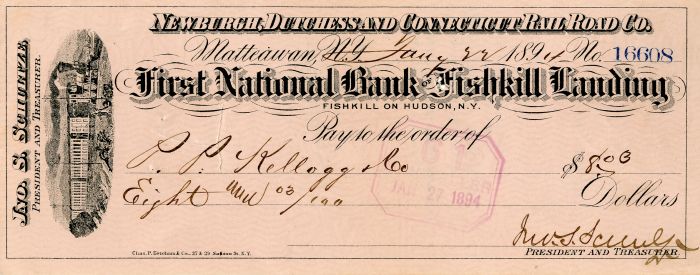 NEWBURGH, DUTCHESS AND CONNECTICUT RAIL ROAD CO.
Matteawan, N.Y. Jany 22 1894 No. 16608
First National Bank of Fishkill Landing
FISHKILL ON HUDSON, N.Y.
Pay to the order of
P. P. Kellogg & Co $8.03
Eight and 03/100 Dollars
JAN 27 1894
Jno. S. Schultze
PRESIDENT AND TREASURER
Chas. P. & Co., 27 & 29 St. N.Y.
JNO. S. SCHULTZE.
PRESIDENT AND TREASURER.